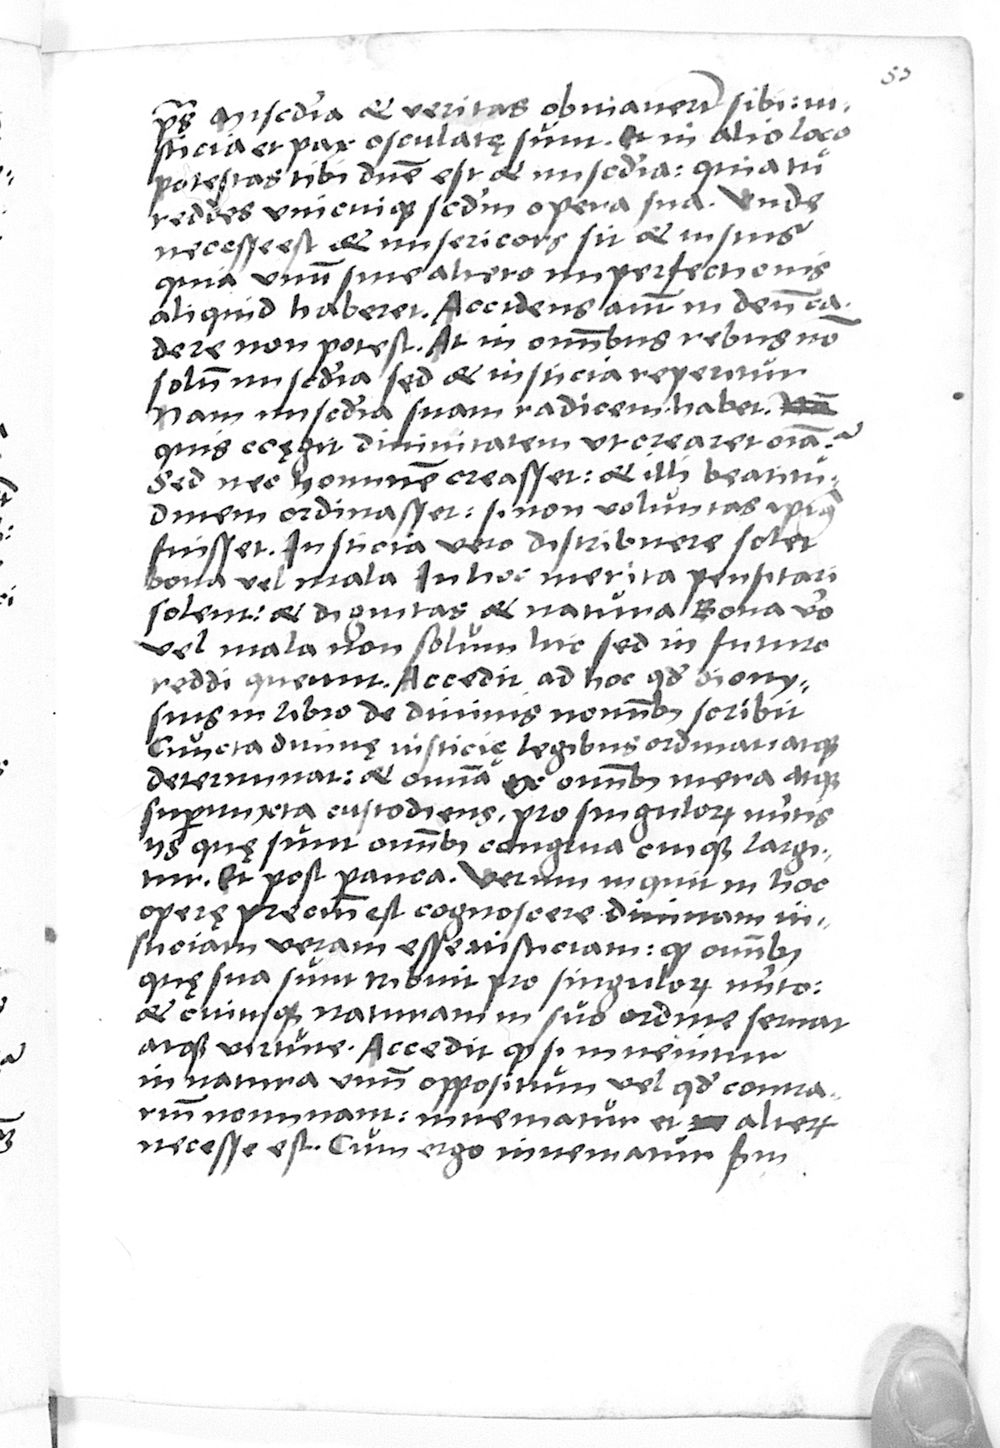 53
p̄s Misc̄dia & veritas obviaverūt sibi: iu-
sticia et pax osculatę sunt. Et in alio loco
potestas tibi dn̄e est & misc̄dia: quia tu
reddes unicuiq; sc̄dm opera sua. Unde
necesse est & misericors sit & iustus
quia unū sine altero imperfectionis
aliquid haberet. Accidens aut̄ in deū ca-
dere non potest. At in omn̄bus rebus nō
solū misc̄dia sed & iusticia reperitur
Nam misc̄dia suam radicem habet.
quis ccęgit divinitatem ut crearet oīa?
Sed nec hominē creasset: & illi beatitu-
dinem ordinasset: si non voluntas ipsius
fuisset. Iusticia vero distribuere solet
bona vel mala In hoc merita pensitari
solent: & dignitas & natura Bona v̄o
vel mala non solum hic sed in futuro
reddi queunt. Accedit ad hoc qd̄ diony-
sius in libro de divinis nomīb; scribit
Cuncta divinę iusticię legibus ordinari atq;
determinat: & omīa ex omīb; mera atq;
supermixta custodiens, pro singulor̨ n̄utis
iis quę sunt omīb; congrua cuiq; largi-
tur. Et post pauca. Verum inquit in hoc
operę preciū est cognoscere divinam iu-
sticiam veram esse iusticiam: q; omīb;
quę sua sunt tribuit pro singulor̨ n̄uto:
& cuiusq; naturam in suo ordine servat
atq; virtute. Accedit q; si invenitur
in natura unū oppositum vel qd̄ contra-
riū nominant: inveniatur et alter̨
necesse est. Cum ergo inveniatur sūm